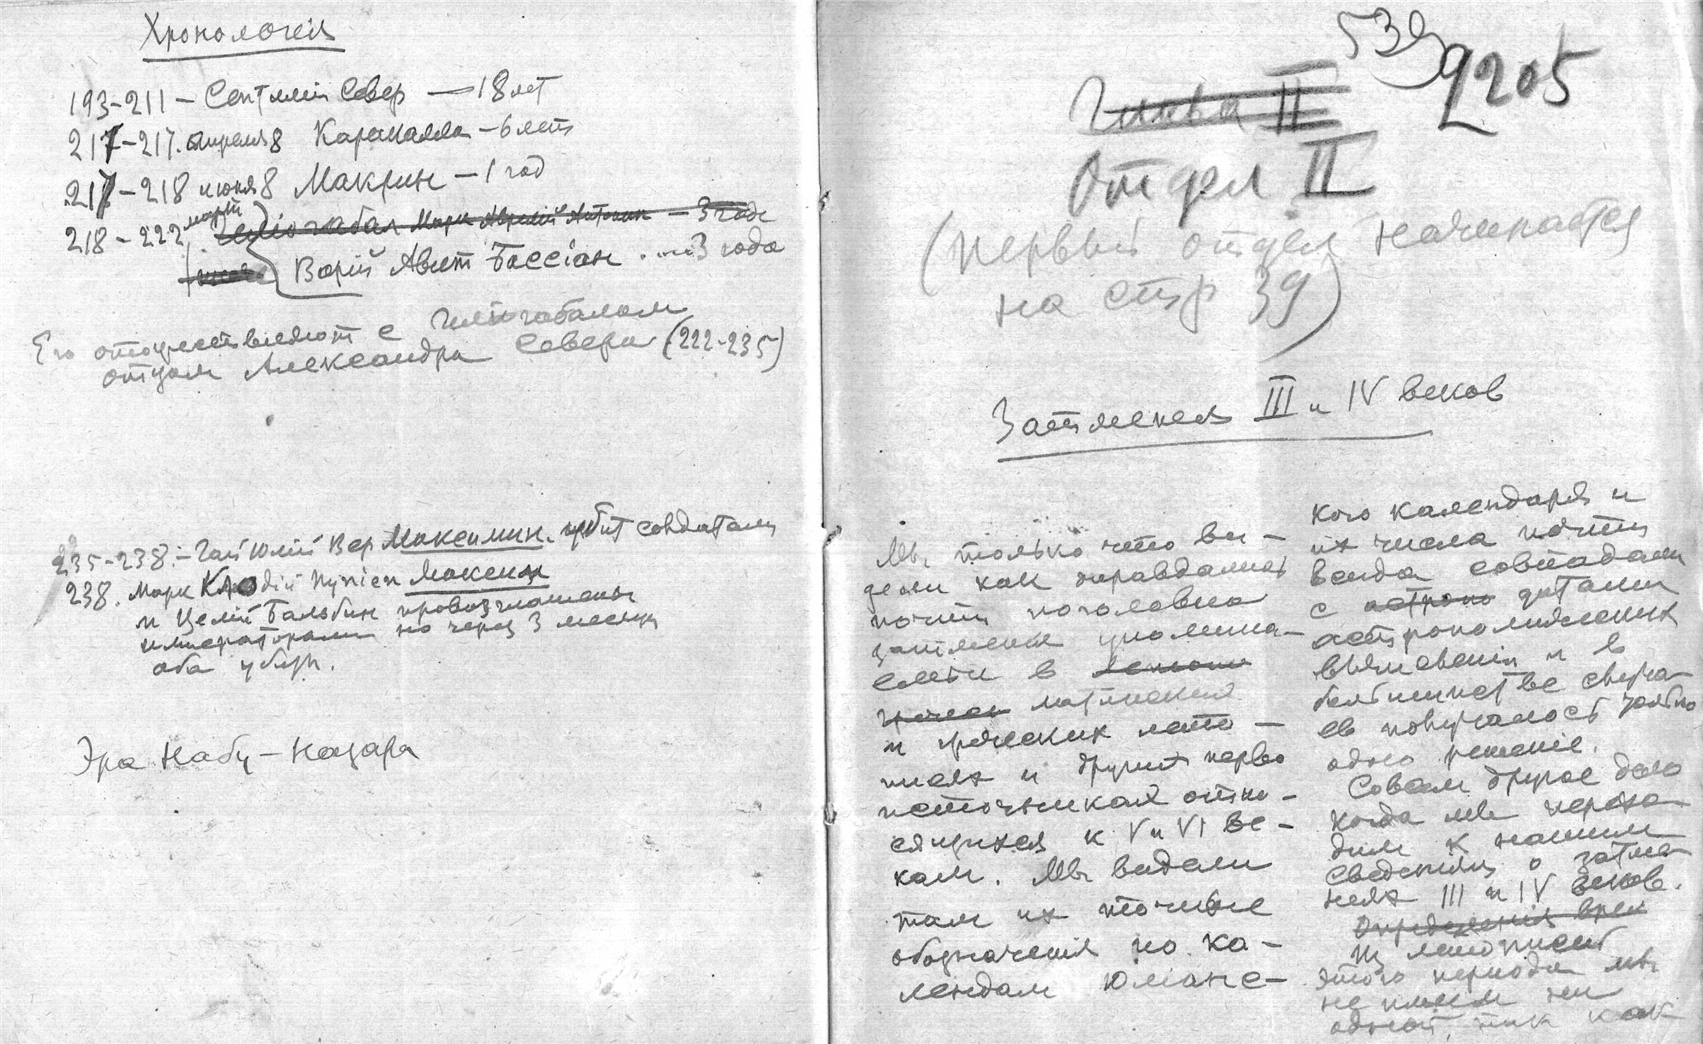 Хронологія
193-211 - Септимій Север - 18 лет
217-217. апреля 8 Каракалла - 6 лет
217-218 июня 8 Макрин - 1 год
218-222 март Геліогабал Марк Аврелій Антонин - 3 года
Варій Авит Бассіан . . . 3 года
Его отождествляют с Геліогабалом
отцом Александра Севера (222-235)
235-238. - Гай Юлій Вер Максимин. убит солдатами
238. Марк Клодій Пупіен Максим
и Целій Бальбин провозглашены
императорами но через 3 месяца
оба убиты.
Эра Набу-Назара
539
9205
Глава II
Отдел II
(первый отдел начинается
на стр 39)
Затмения III и IV веков
Мы только что ви-
дели как оправдались
почти поголовно
затмения упомина-
емые в
латинских
и греческих лето-
писях и других перво
источниках отно-
сящихся к V и VI ве-
кам. Мы видели
там их точные
обозначения по ка-
лендам Юлианс-
кого календаря и
их числа почти
всегда совпадали
с астроно датами
астрономических
вычислений и в
большинстве случа-
ев получалось только
одно решеніе.
Совсем другое дело
когда мы перехо-
дим к нашим
сведениям о затме-
ниях III и IV веков.
Определения врем
Из летописей
этого периода мы
не имеем ни
одной, так как